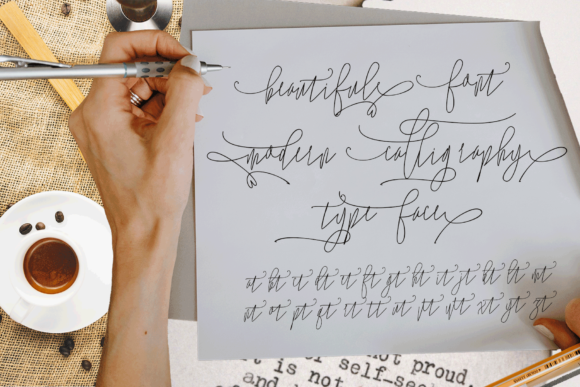 beautiful font
modern calligraphy
type face
at bt ct dt et ft gt ht it jt kt lt mt
nt ot pt qt rt st tt ut vt wt xt yt zt
not proud
is not self-see
and